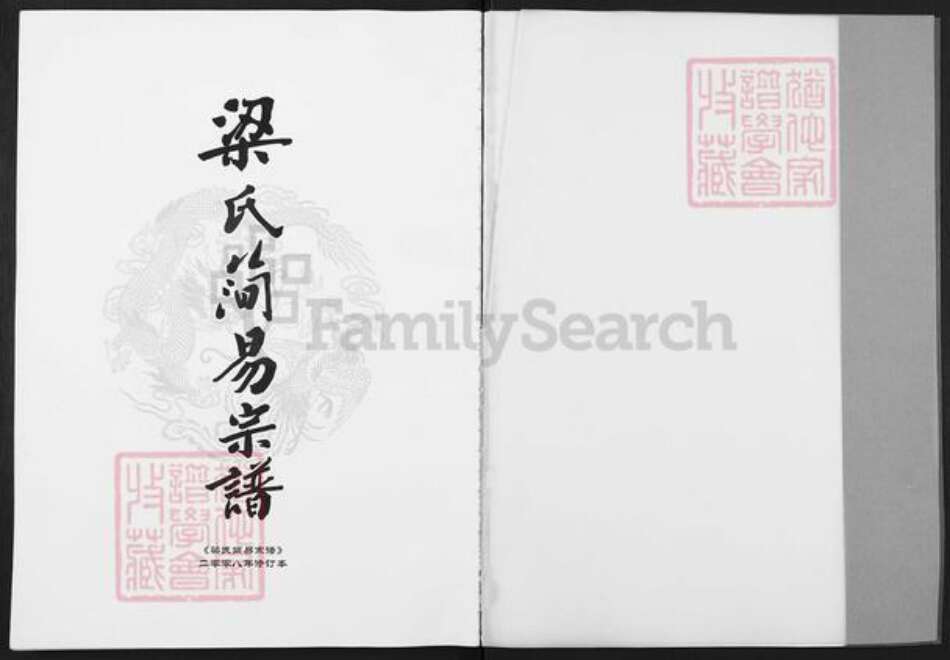 梁氏简易宗譜
《梁氏简易宗谱》
二零零八年修订本
猶他家
譜學會
收藏
猶他家
譜學會
收藏
FamilySearch